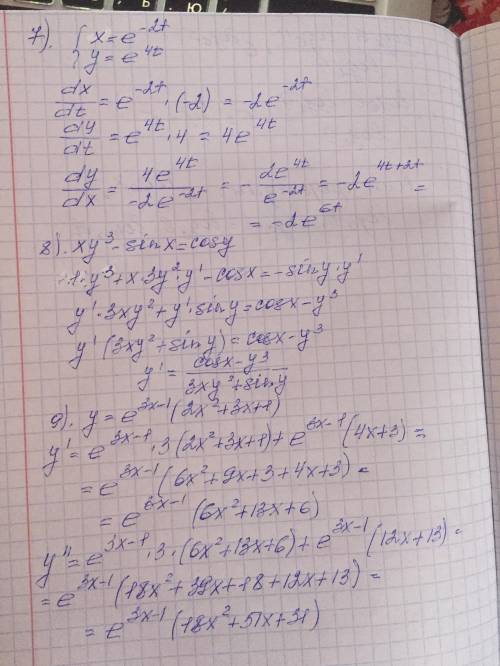 7). { x = e^{-2t}
y = e^{4t}
dx/dt = e^{-2t} · (-2) = -2e^{-2t}
dy/dt = e^{4t} · 4 = 4e^{4t}
dy/dx = 4e^{4t}/-2e^{-2t} = - 2e^{4t}/e^{-2t} = -2e^{4t+2t} =
= -2e^{6t}
8). xy³ - sinx = cosy
1·y³ + x·3y²·y' - cosx = -siny·y'
y'·3xy² + y'·siny = cosx - y³
y'(3xy² + siny) = cosx - y³
y' = cosx - y³/3xy² + siny
9). y = e^{3x-1}(2x² + 3x + 1)
y' = e^{3x-1}·3(2x² + 3x + 1) + e^{3x-1}(4x + 3) =
= e^{3x-1}(6x² + 9x + 3 + 4x + 3) =
= e^{3x-1}(6x² + 13x + 6)
y'' = e^{3x-1}·3·(6x² + 13x + 6) + e^{3x-1}(12x + 13) =
= e^{3x-1}(18x² + 39x + 18 + 12x + 13) =
= e^{3x-1}(18x² + 51x + 31)